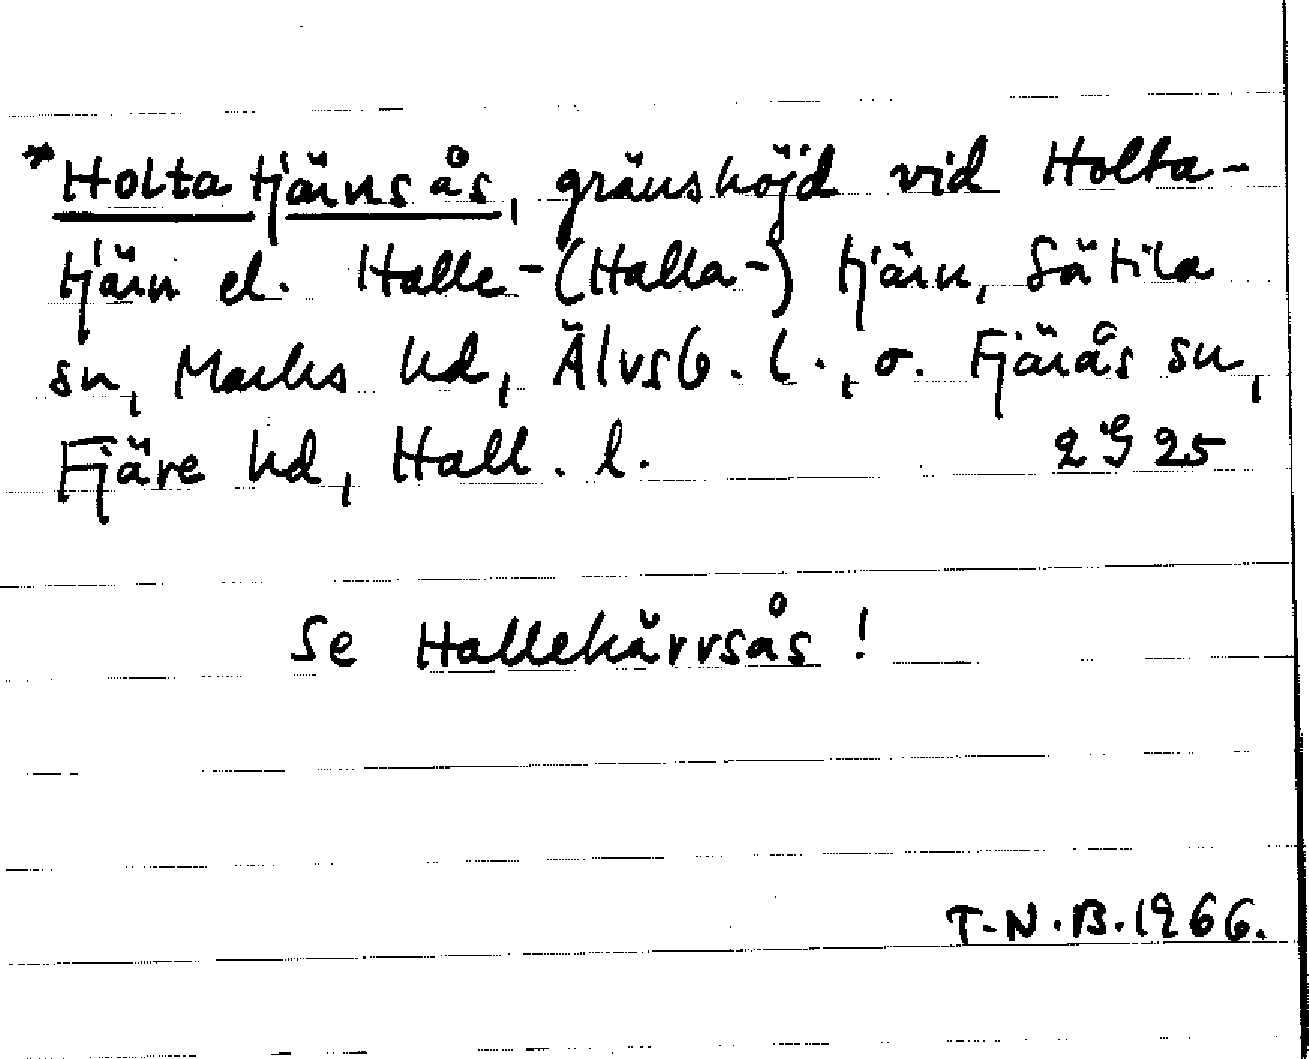 *Holta tjärnsås, gränshöjd vid Holta-
tjärn el. Halle-(Halla-) tjärn, Sätila
sn, Marks hd, Älvsb. l., o. Fjärås sn,
Fjäre hd, Hall. l. 2 G 25
Se Hallekärrsås!
T-N.B.1966.